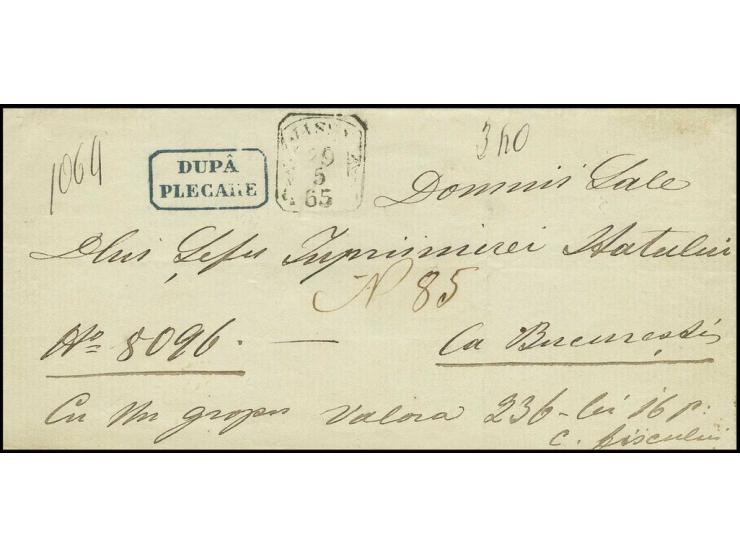 1069
DUPÂ
PLECARE
29
5
65
340
Domnii Sale
Dlui Șefu Inprimerei Statului
N 85
No 8096. —
La București
Cu un gropu valora 236 – lei 16 p:
c. fiscului